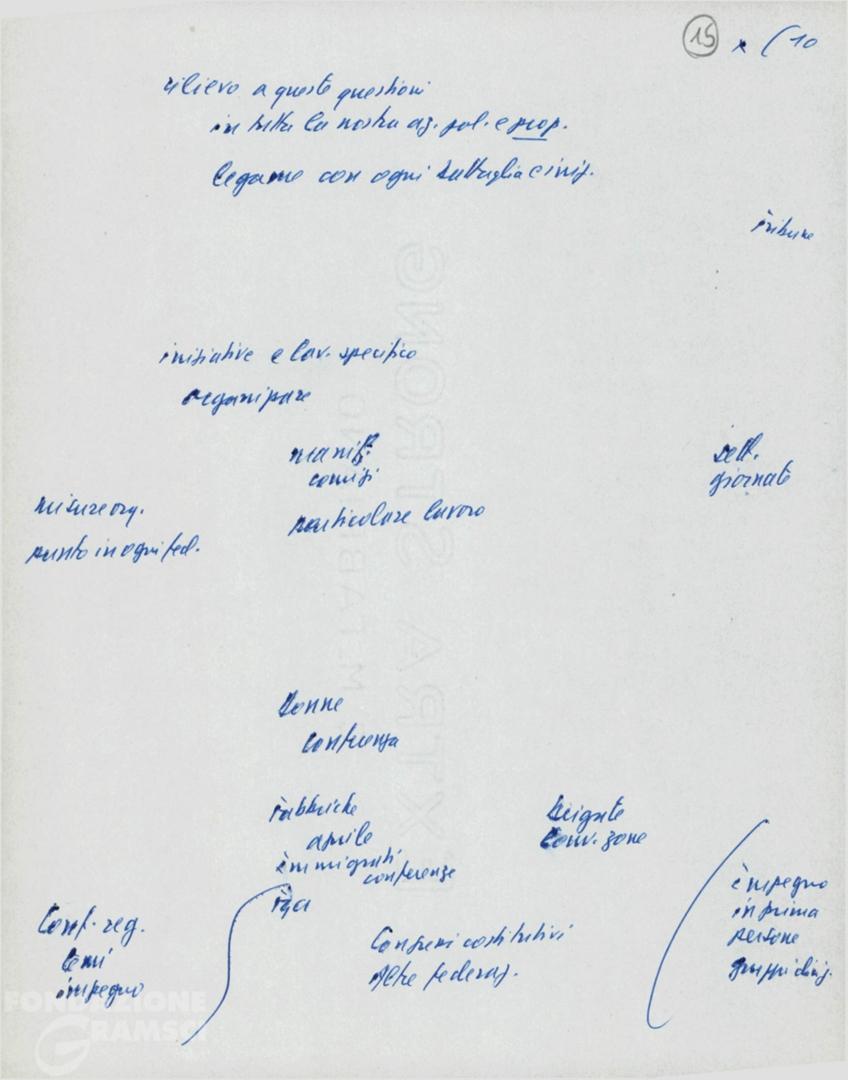 15 x ( 10
rilievo a queste questioni
in tutta la nostra az. pol. e prop.
legame con ogni battaglia e iniz.
tribune
iniziative e lav. specifico
organizzare
manif.
comizi
sett.
giornate
misure org.
particolare lavoro
punto in ogni fed.
Donne
conferenza
fabbriche
aprile
immigrati
conferenze
brigate
conv. zone
fgci
Conf. reg.
temi
impegno
Congressi costitutivi
altre federaz.
impegno
in prima
persona
gruppi dirig.
EXTRA STRONG
FONDAZIONE
GRAMSCI